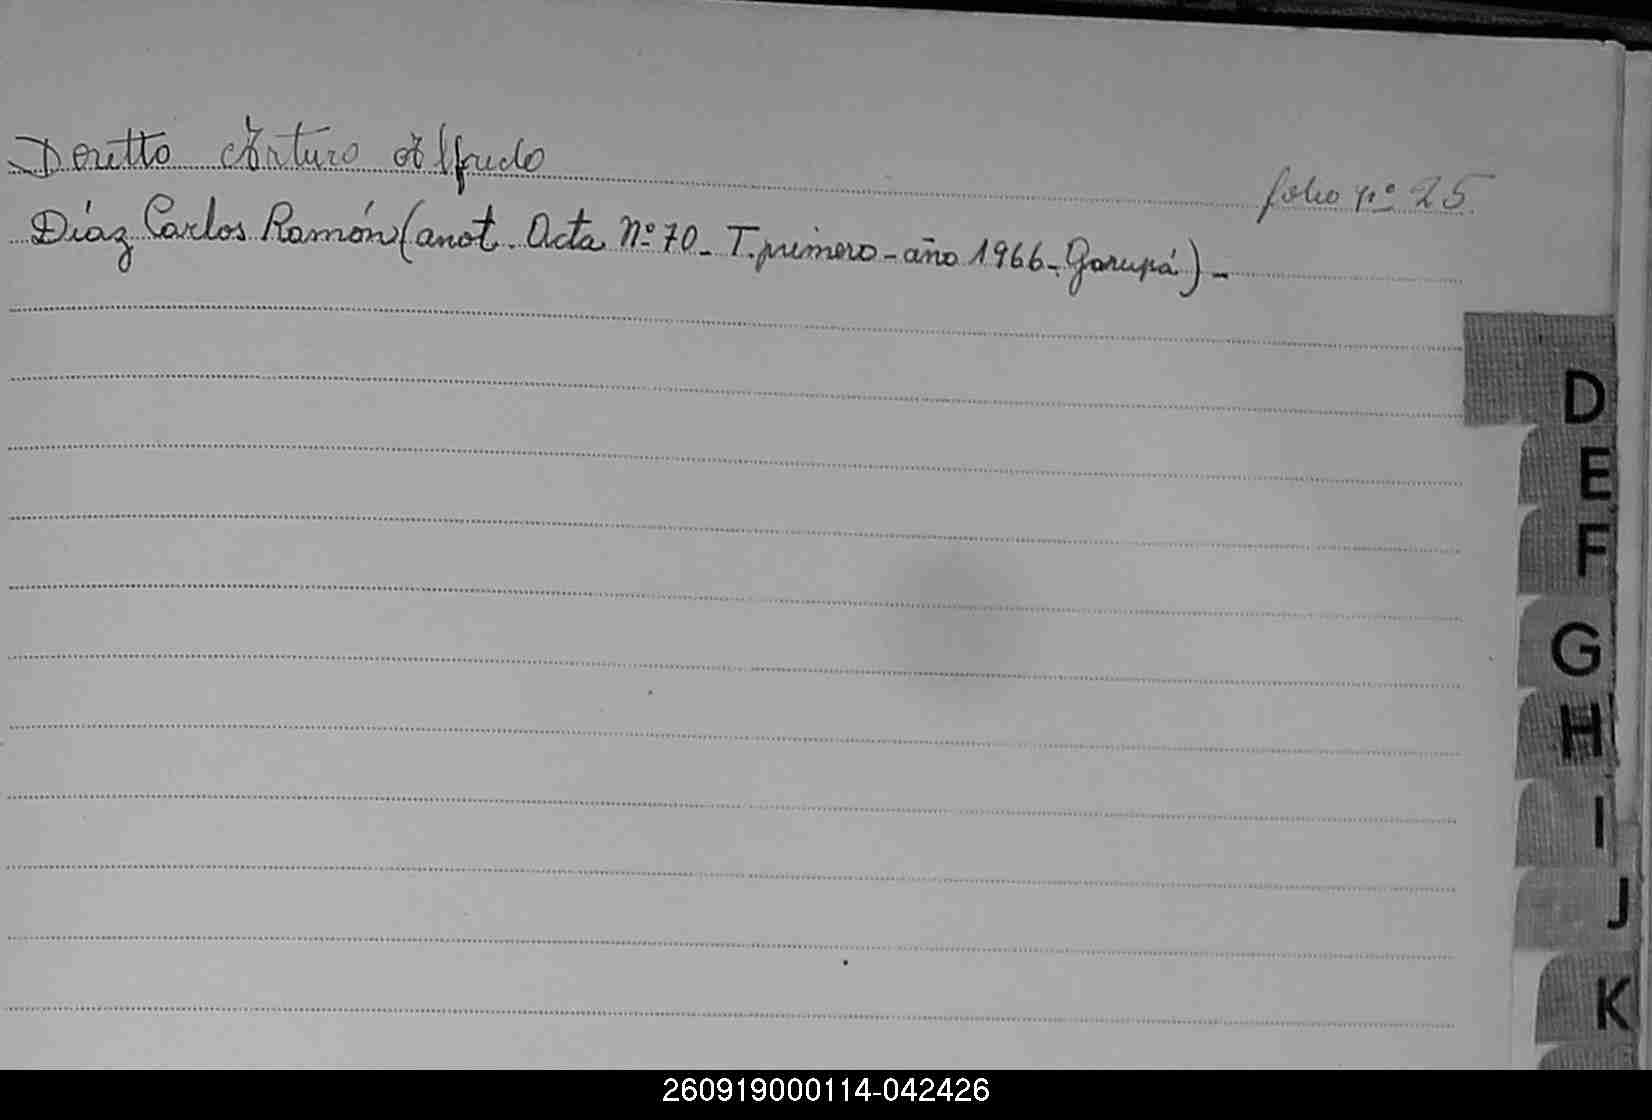 Doretto Arturo Alfredo folio nº 25.
Díaz Carlos Ramón (anot. Acta Nº 70 - T. primero - año 1966 - Garupá) -
D
E
F
G
H
I
J
K
260919000114-042426